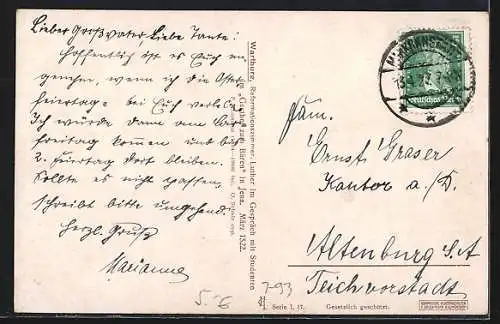 Lieber Großvater Liebe Tante!
Hoffentlich ist es Euch an-
genehm, wenn ich die Oster-
feiertage bei Euch verlebe.
Ich würde dann am Kar-
freitag kommen und bis
2. Feiertag dort bleiben.
Sollte es nicht passen,
schreibt bitte umgehend.
Herzl. Gruß
Marianne
Wartburg, Reformationszimmer. Luther im Gespräch mit Studenten
im „Gasthof zum Bären" in Jena. März 1522.
Deutsches Reich
Fam.
Ernst Graser
Kantor a./D.
Altenburg S.A
Teichvorstadt
5.-6
7-93
Serie I, 17. Gesetzlich geschützt.